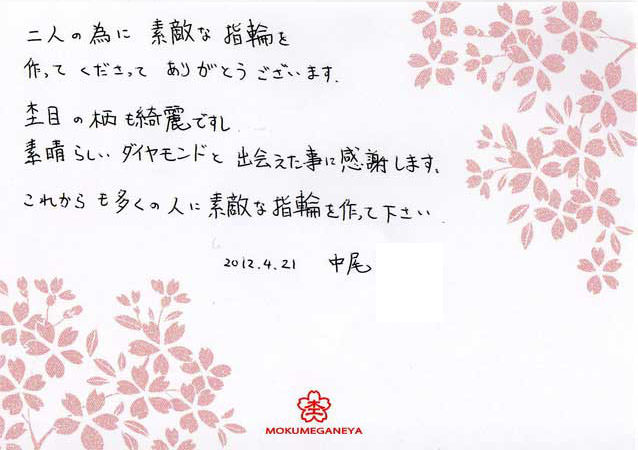 二人の為に 素敵な指輪を
作って くださって ありがとうございます.
杢目の柄も綺麗ですし
素晴らしい ダイヤモンドと 出会えた事に感謝します。
これからも多くの人に素敵な指輪を作って下さい
2012.4.21 中尾
杢
MOKUMEGANEYA